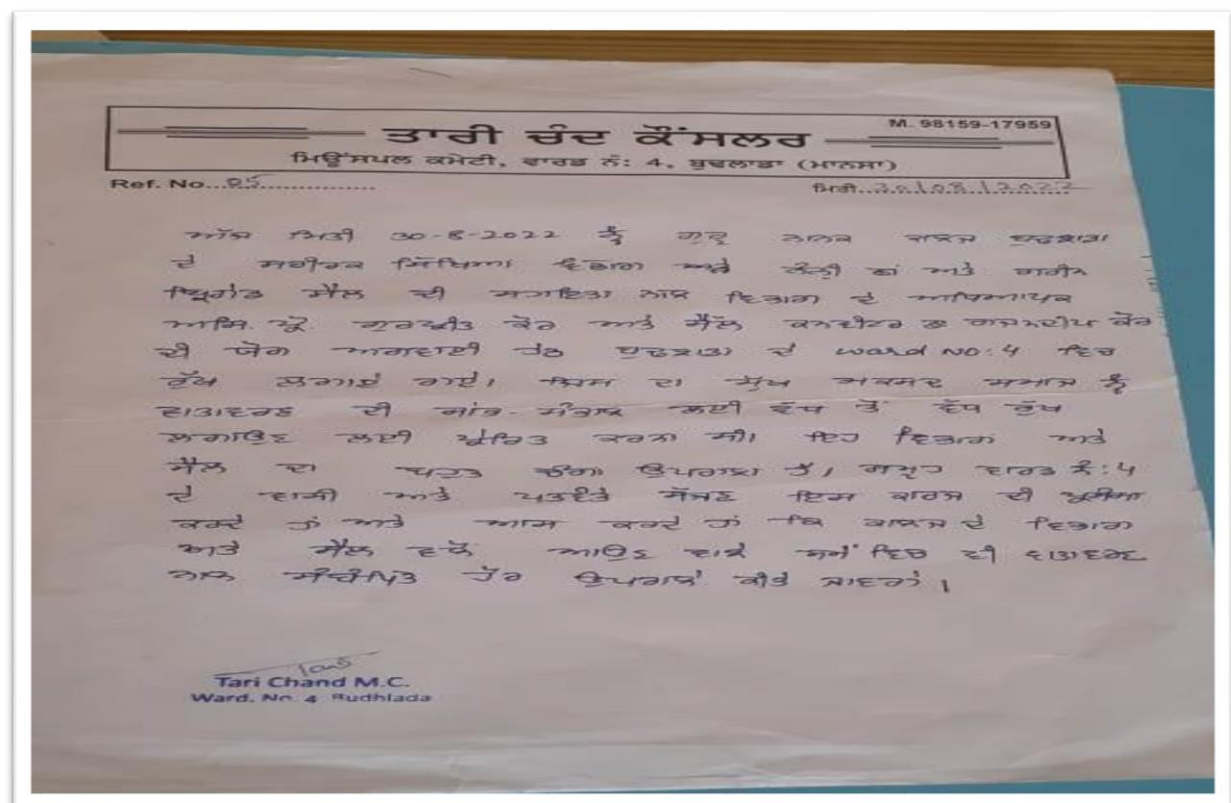 ਤਾਰੀ ਚੰਦ ਕੌਂਸਲਰ
M. 98159-17959
ਮਿਊਂਸਪਲ ਕਮੇਟੀ, ਵਾਰਡ ਨੰ: 4, ਬੁਢਲਾਡਾ (ਮਾਨਸਾ)
Ref. No...25............
ਮਿਤੀ...30/08/2022
ਅੱਜ ਮਿਤੀ 30-8-2022 ਨੂੰ ਗੁਰੂ ਨਾਨਕ ਕਾਲਜ ਬੁਢਲਾਡਾ
ਦੇ ਸਰੀਰਕ ਸਿੱਖਿਆ ਵਿਭਾਗ ਅਤੇ ਅਤੇ ਗਰੀਨ
ਬ੍ਰਿਗੇਡ ਸੈੱਲ ਦੀ ਸਹਾਇਤਾ ਨਾਲ ਵਿਭਾਗ ਦੇ ਅਧਿਆਪਕ
ਅਸਿ. ਪ੍ਰੋ. ਗੁਰਪ੍ਰੀਤ ਕੌਰ ਅਤੇ ਸੈੱਲ ਡਾ ਗਜਨਦੀਪ ਕੌਰ
ਦੀ ਯੋਗ ਅਗਵਾਈ ਹੇਠ ਬੁਢਲਾਡਾ ਦੇ ward NO:4 ਵਿਚ
ਰੁੱਖ ਲਗਾਏ ਗਏ। ਜਿਸ ਦਾ ਮੁੱਖ ਮਕਸਦ ਸਮਾਜ ਨੂੰ
ਵਾਤਾਵਰਣ ਦੀ ਸਾਂਭ-ਸੰਭਾਲ ਲਈ ਵੱਧ ਤੋਂ ਵੱਧ ਰੁੱਖ
ਲਗਾਉਣ ਲਈ ਪ੍ਰੇਰਿਤ ਕਰਨਾ ਸੀ। ਇਹ ਵਿਭਾਗ ਅਤੇ
ਸੈੱਲ ਦਾ ਬਹੁਤ ਚੰਗਾ ਉਪਰਾਲਾ ਹੈ। ਸਮੂਹ ਵਾਰਡ ਨੰ:4
ਦੇ ਵਾਸੀ ਅਤੇ ਪਤਵੰਤੇ ਸੱਜਣ ਇਸ ਕਾਰਜ ਦੀ ਪ੍ਰਸੰਸਾ
ਕਰਦੇ ਹਾਂ ਅਤੇ ਆਸ ਕਰਦੇ ਹਾਂ ਕਿ ਕਾਲਜ ਦੇ ਵਿਭਾਗ
ਅਤੇ ਸੈੱਲ ਵਲੋਂ ਆਉਣ ਵਾਲੇ ਸਮੇਂ ਵਿਚ ਵੀ ਵਾਤਾਵਰਣ
ਨਾਲ ਸੰਬੰਧਿਤ ਹੋਰ ਉਪਰਾਲੇ ਕੀਤੇ ਜਾਵਣਗੇ।
Tari Chand M.C.
Ward. No. 4 Budhlada